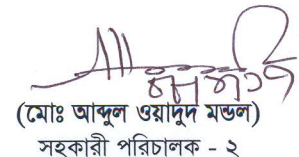 (মোঃ আব্দুল ওয়াদুদ মন্ডল)
সহকারী পরিচালক - ২